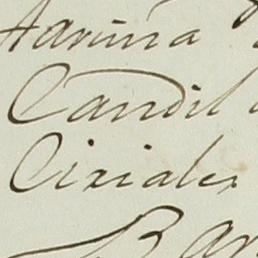 Harina
Candil
Ciriales
Bar